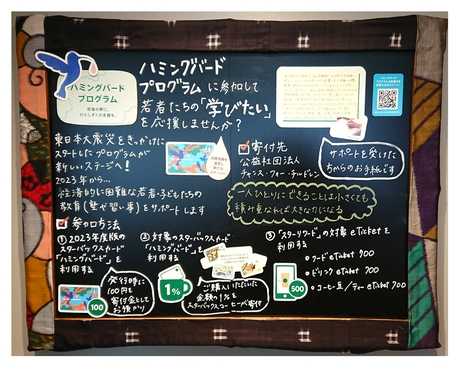 ハミングバード
プログラム
若者の夢に、
ひとしずくの支援を。
ハミングバード
プログラムに参加して
若者たちの「学びたい」
を応援しませんか?
東日本大震災をきっかけに
スタートしたプログラムが
新しいステージへ!
2023年から...
経済的に困難な若者・子どもたちの
教育(塾や習い事)をサポートします
サポートを受けた
方からのお手紙です
寄付先
公益社団法人
チャンス・フォー・チルドレン
一人ひとりにできることは小さくても
積み重なれば大きな力になる
参加方法
① 2023年度版の
スターバックスカード
「ハミングバード」を
利用する
発行時に
100円を
寄付金として
お預かり
100
② 対象のスターバックスカード
「ハミングバード」を
利用する
1%
ご購入いただいた
金額の1%を
スターバックスコーヒーが寄付
③「スターリワード」の対象eTicketを
利用する
フードeTicket 700
ドリンクeTicket 700
コーヒー豆/ティーeTicket 700
500